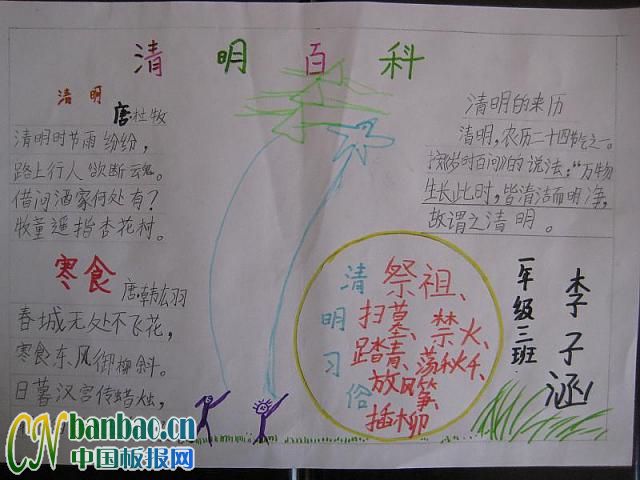 清明百科
清明
唐·杜牧
清明时节雨纷纷，
路上行人欲断魂。
借问酒家何处有？
牧童遥指杏花村。
寒食
唐·韩翃
春城无处不飞花，
寒食东风御柳斜。
日暮汉宫传蜡烛，
清明的来历
清明，农历二十四节气之一。
按《岁时百问》的说法："万物
生长此时，皆清洁而明净，
故谓之清明。
清明习俗
祭祖、
扫墓、禁火、
踏青、荡秋千、
放风筝、
插柳
一年级三班
李子涵
CN banbao.cn
中国板报网